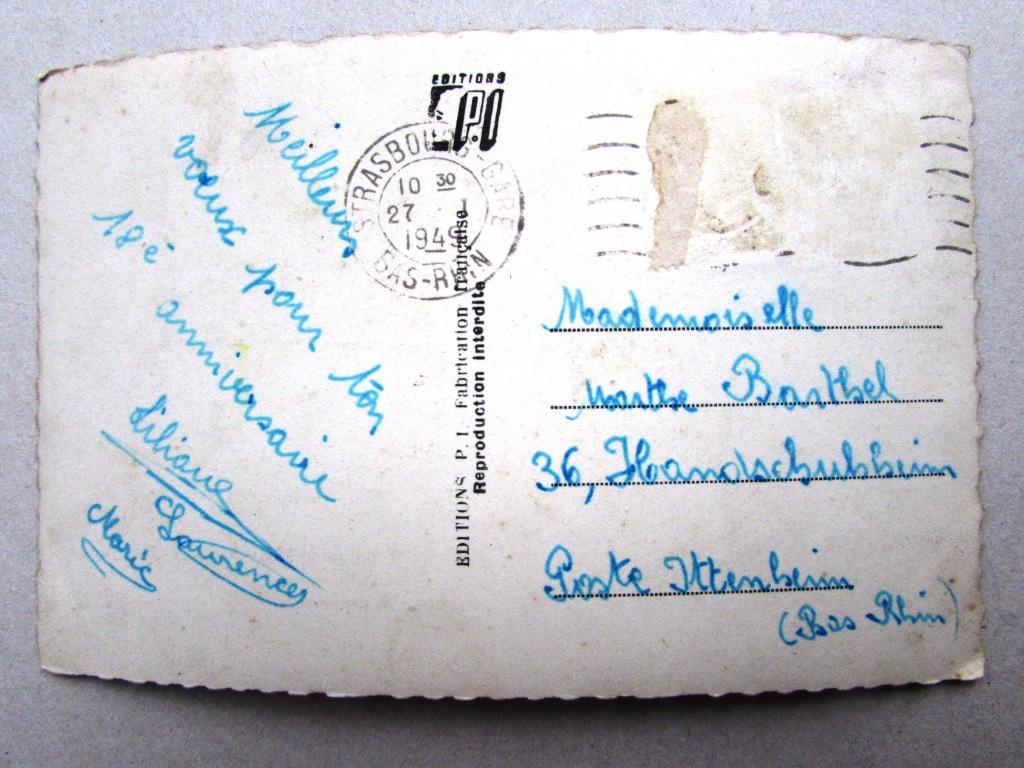 Meilleurs
voeux pour ton
18è anniversaire
Liliane
Laurence
Marie
EDITIONS
P.I
STRASBOURG-GARE
10 30
27
1949
BAS-RHIN
EDITIONS P. I. Fabrication française
Reproduction interdite
Mademoiselle
Marthe Barthel
36, Handschuhheim
Poste Ittenheim
(Bas Rhin)